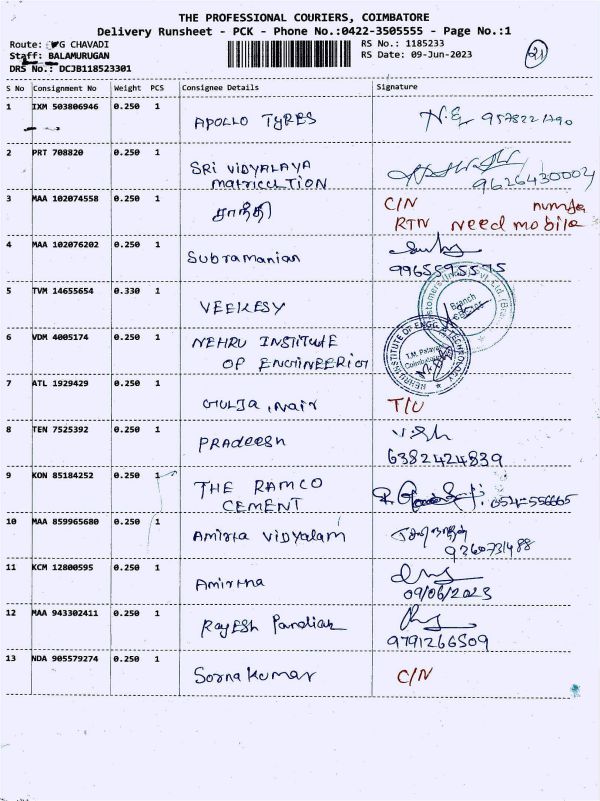 THE PROFESSIONAL COURIERS, COIMBATORE
Delivery Runsheet - PCK - Phone No.:0422-3505555 - Page No.:1
Route: G CHAVADI
RS No.: 1185233
Staff: BALAMURUGAN
RS Date: 09-Jun-2023
21
DRS No.: DCJB118523301
S No Consignment No Weight PCS Consignee Details Signature
1 IXM 503806946 0.250 1
APOLLO TYRES
2 PRT 708820 0.250 1
SRI VIDYALAYA
MATRICULTION 9626430004
3 MAA 102074558 0.250 1 C/N number
சாந்தி RTN Need mobile
4 MAA 102076202 0.250 1
Subramanian 9965595595
5 TVM 14655654 0.330 1
VEEKESY Branch
6 VDM 4005174 0.250 1 NEHRU INSTITUTE OF ENGG & TECHNOLOGY
NEHRU INSTITUTE T.M. Palayam
OF ENGINEERIG Coimbatore
7 ATL 1929429 0.250 1
Nair T/U
8 TEN 7525392 0.250 1
PRadeesh 6382424839
9 KON 85184252 0.250 1
THE RAMCO
CEMENT
10 MAA 859965680 0.250 1
Amirta Vidyalam 9360731488
11 KCM 12800595 0.250 1
Amirtha 09/06/2023
12 MAA 943302411 0.250 1
Rajesh Pandian 9791266509
13 NDA 905579274 0.250 1
Sornakumar C/N